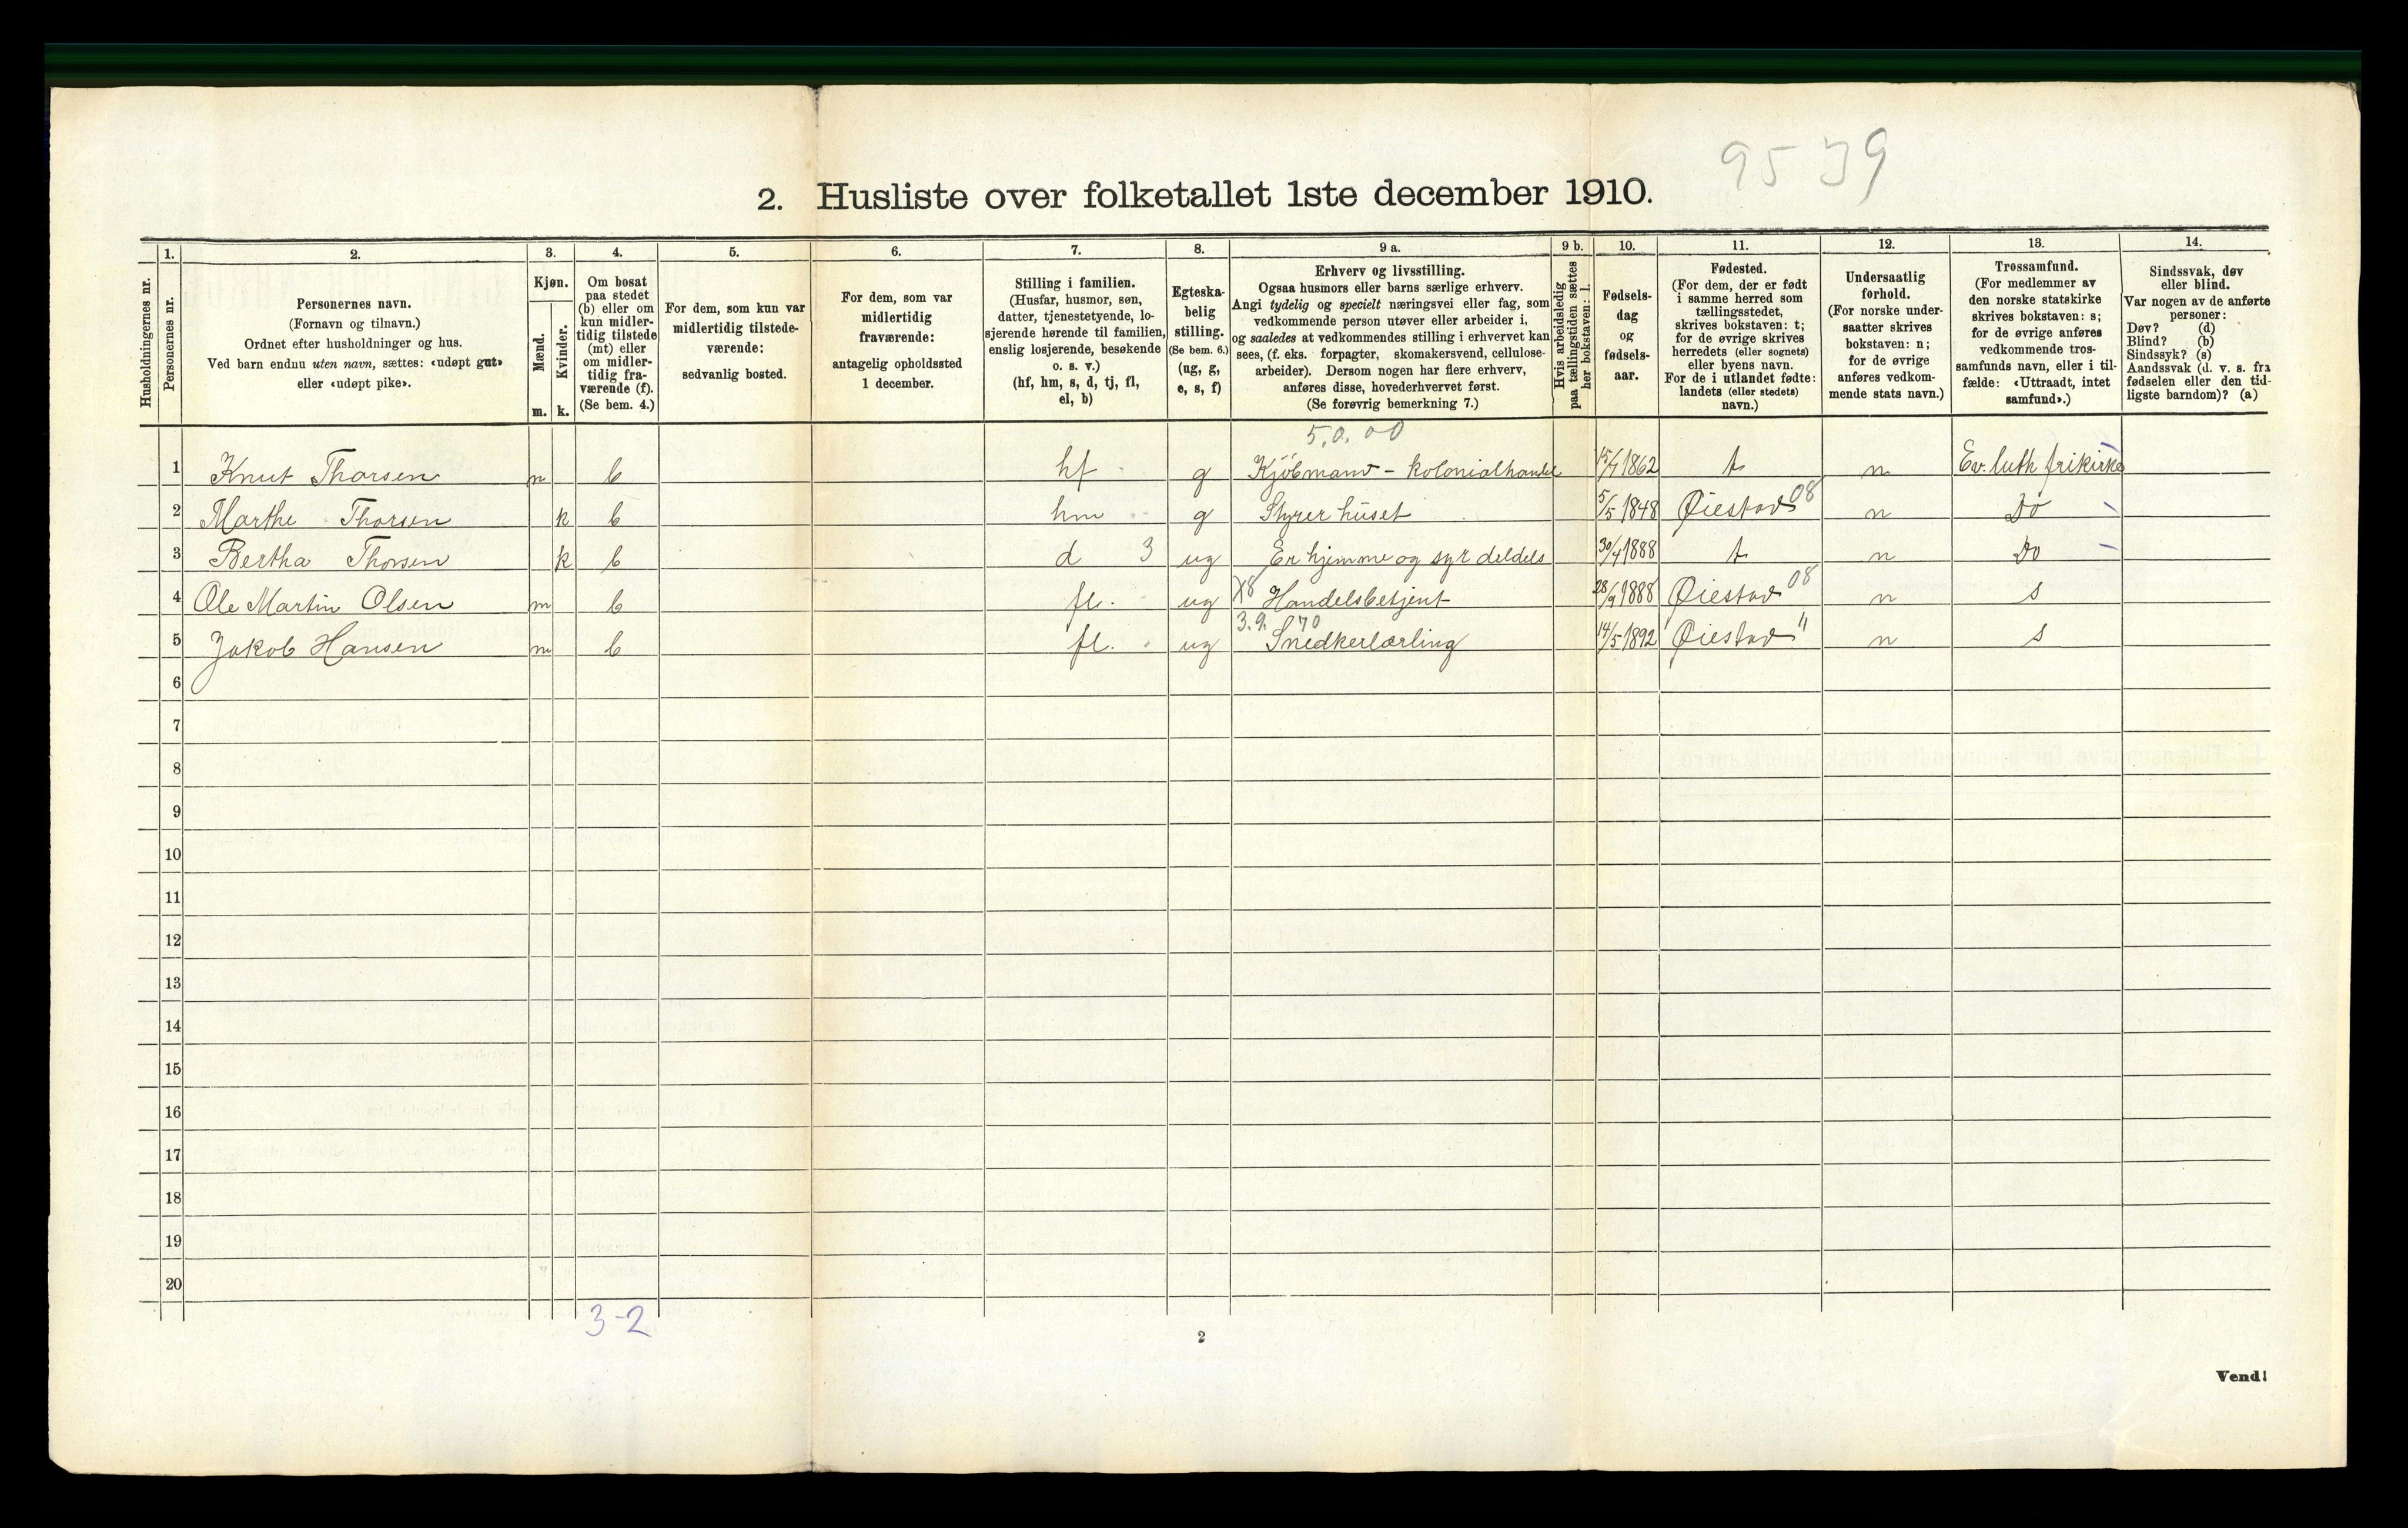 9539
2. Husliste over folketallet 1ste december 1910.
Husholdningernes nr.
1.
Personernes nr.
2.
Personernes navn.
(Fornavn og tilnavn.)
Ordnet efter husholdninger og hus.
Ved barn endnu uten navn, sættes: «udøpt gut»
eller «udøpt pike».
3.
Kjøn.
Mænd.
m.
Kvinder.
k.
4.
Om bosat
paa stedet
(b) eller om
kun midler-
tidig tilstede
(mt) eller
om midler-
tidig fra-
værende (f).
(Se bem. 4.)
5.
For dem, som kun var
midlertidig tilstede-
værende:
sedvanlig bosted.
6.
For dem, som var
midlertidig
fraværende:
antagelig opholdssted
1 december.
7.
Stilling i familien.
(Husfar, husmor, søn,
datter, tjenestetyende, lo-
sjerende hørende til familien,
enslig losjerende, besøkende
o. s. v.)
(hf, hm, s, d, tj, fl,
el, b)
8.
Egteska-
belig
stilling.
(Se bem. 6.)
(ug, g,
e, s, f)
9 a.
Erhverv og livsstilling.
Ogsaa husmors eller barns særlige erhverv.
Angi tydelig og specielt næringsvei eller fag, som
vedkommende person utøver eller arbeider i,
og saaledes at vedkommendes stilling i erhvervet kan
sees, (f. eks. forpagter, skomakersvend, cellulose-
arbeider). Dersom nogen har flere erhverv,
anføres disse, hovederhvervet først.
(Se forøvrig bemerkning 7.)
9 b.
Hvis arbeidsledig
paa tællingstiden sættes
her bokstaven: l.
10.
Fødsels-
dag
og
fødsels-
aar.
11.
Fødested.
(For dem, der er født
i samme herred som
tællingsstedet,
skrives bokstaven: t;
for de øvrige skrives
herredets (eller sognets)
eller byens navn.
For de i utlandet fødte:
landets (eller stedets)
navn.)
12.
Undersaatlig
forhold.
(For norske under-
saatter skrives
bokstaven: n;
for de øvrige
anføres vedkom-
mende stats navn.)
13.
Trossamfund.
(For medlemmer av
den norske statskirke
skrives bokstaven: s;
for de øvrige anføres
vedkommende tros-
samfunds navn, eller i til-
fælde: «Uttraadt, intet
samfund».)
14.
Sindssvak, døv
eller blind.
Var nogen av de anførte
personer:
Døv? (d)
Blind? (b)
Sindssyk? (s)
Aandssvak (d. v. s. fra
fødselen eller den tid-
ligste barndom)? (a)
5.0.00
1 Knut Thorsen m b hf g Kjøbmand - kolonialhandel 15/7 1862 t n Ev. luth frikirke
2 Marthe Thorsen k b hm g Styrer huset 5/5 1848 Øiestad 08 n Do
3 Bertha Thorsen k b d 3 ug Er hjemme og syr deldels 30/4 1888 t n Do
4 Ole Martin Olsen m b fl. ug X8 Handelsbetjent 28/9 1888 Øiestad 08 n s
3.9. 70
5 Jakob Hansen m b fl. ug Snedkerlærling 14/5 1892 Øiestad " n s
6
7
8
9
10
11
12
13
14
15
16
17
18
19
20
3-2
2
Vend!